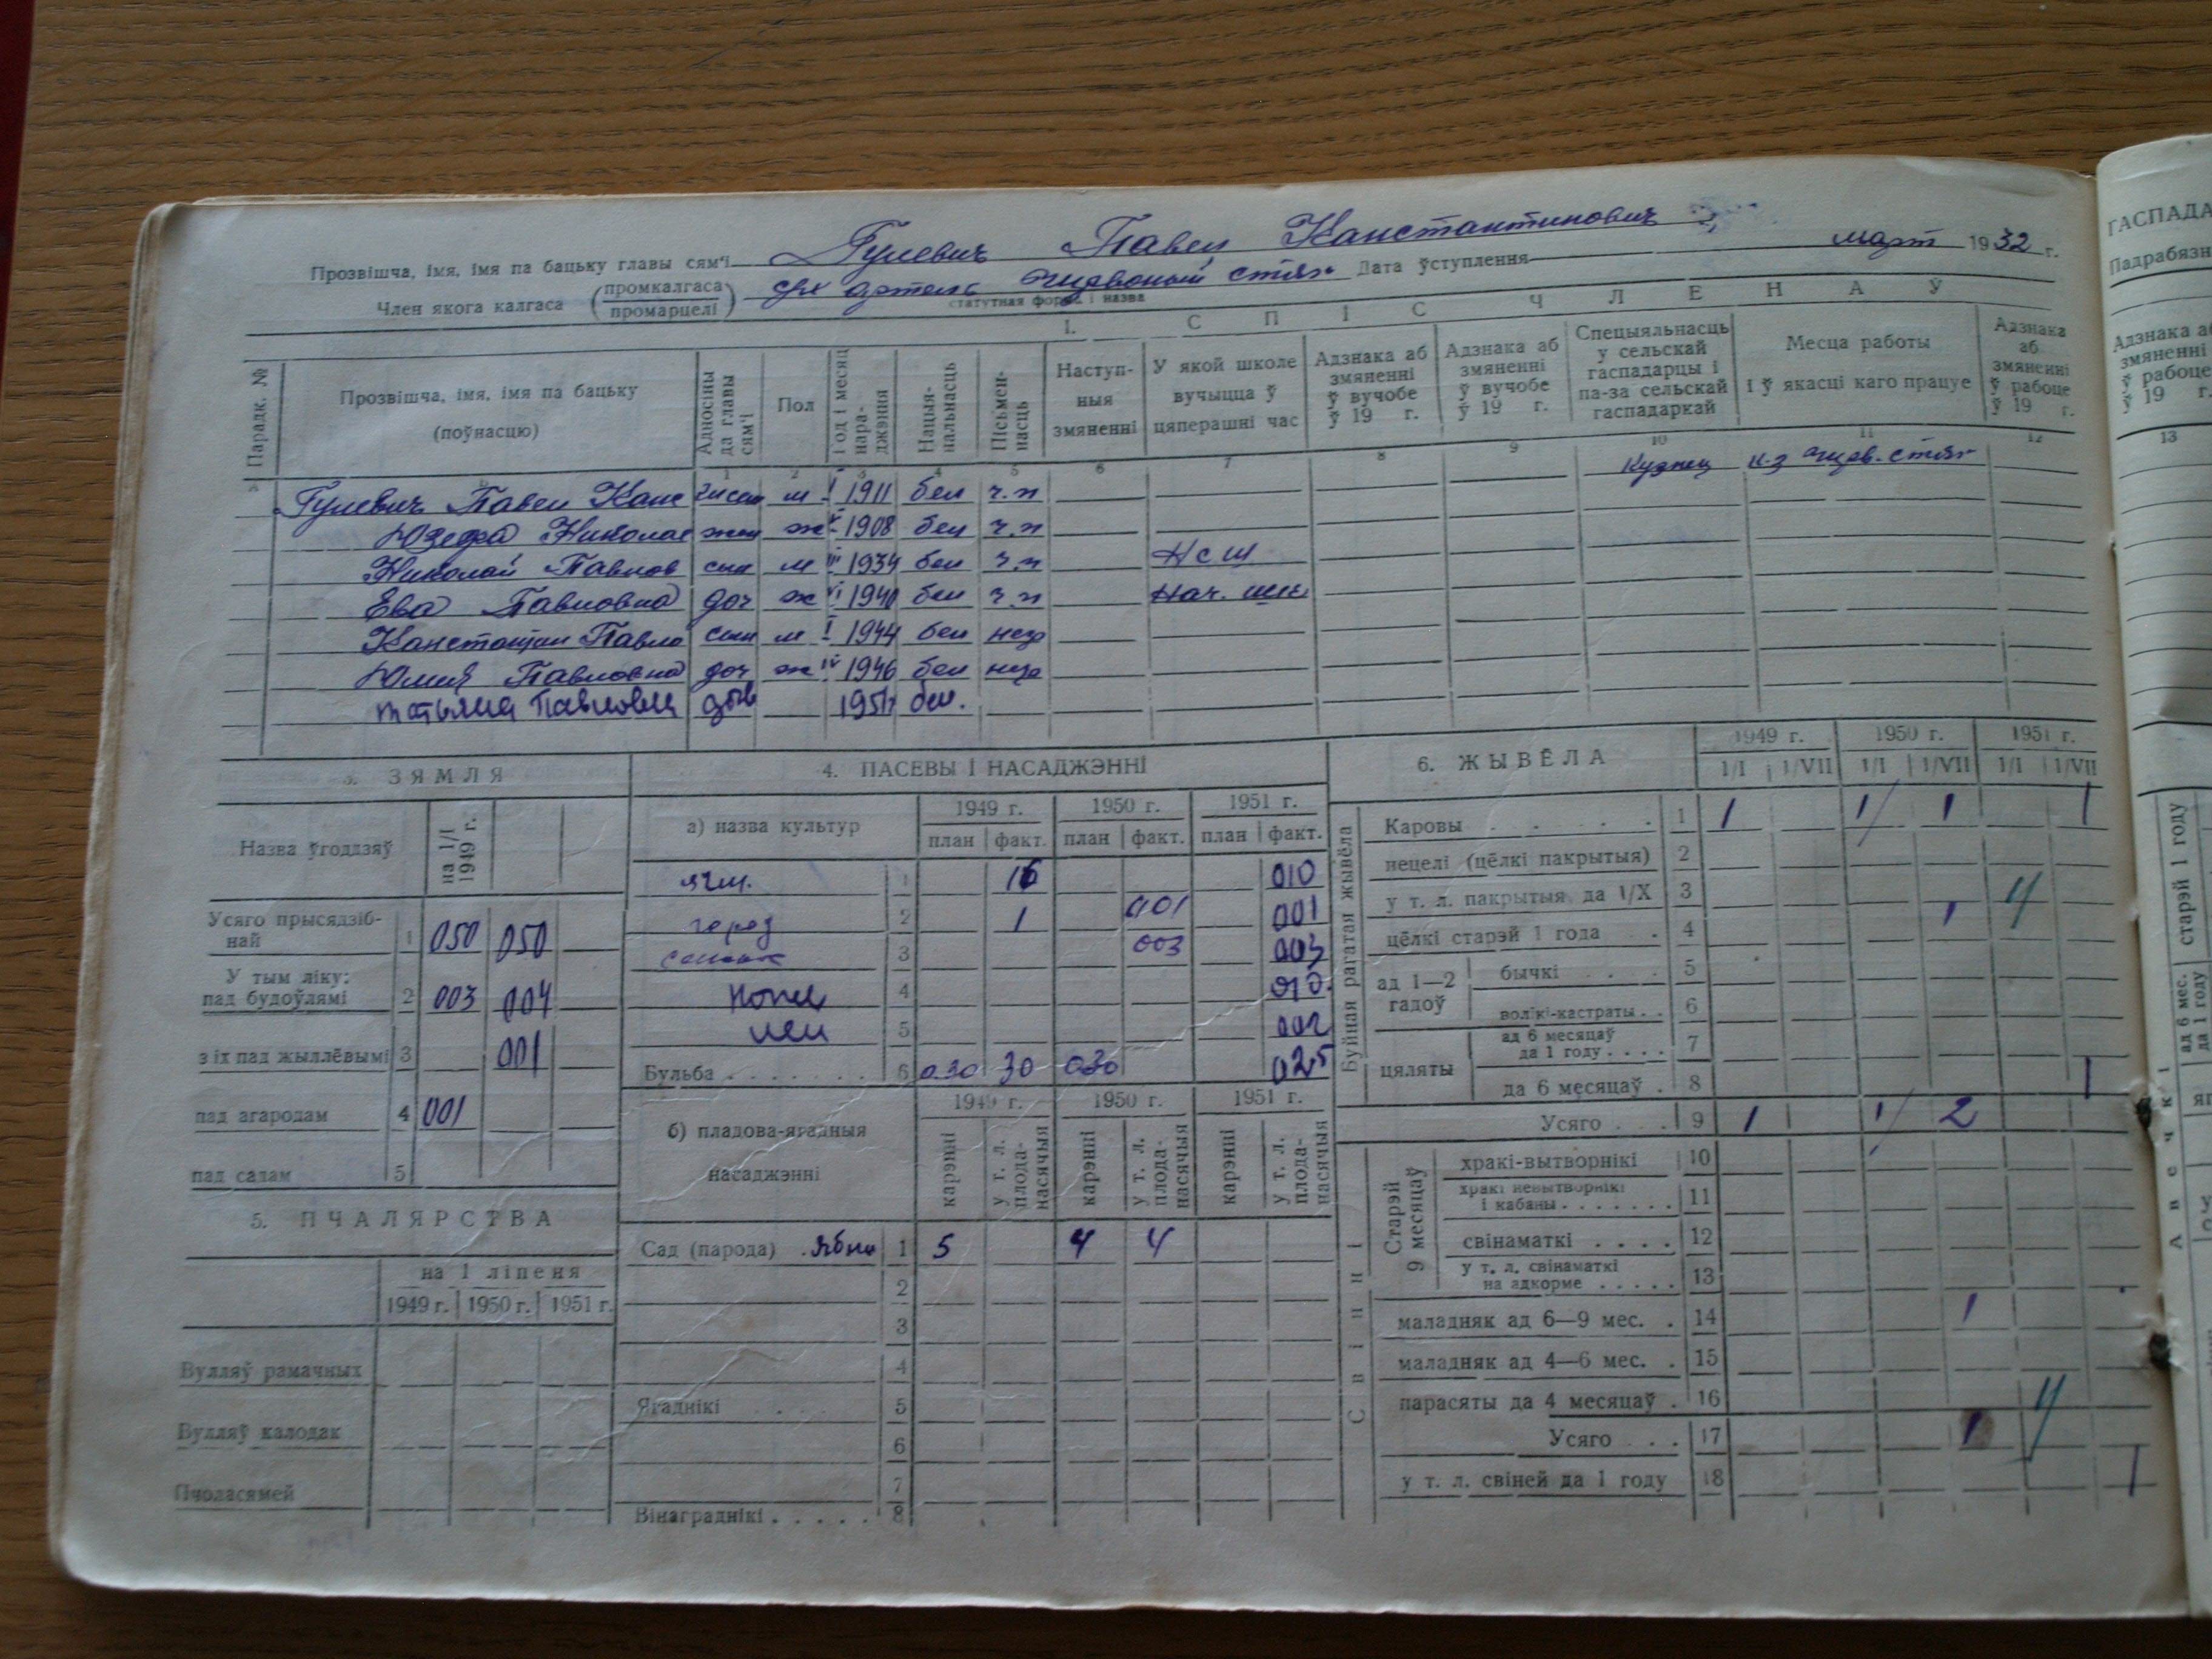 Прозвішча, імя, імя па бацьку главы сям'і Гулевич Павел Канстантинович
Член якога калгаса (промкалгаса / промарцелі) с/х артель Чирвоный стяг Дата ўступлення март 1932 г.
статутная форма і назва
I. СПІС ЧЛЕНАЎ
Парадк. № Прозвішча, імя, імя па бацьку (поўнасцю) Адносіны да главы сям'і Пол Год і месяц нараджэння Нацыянальнасць Пісьменнасць Наступныя змяненні У якой школе вучыцца ў цяперашні час Адзнака аб змяненні ў вучобе ў 19 г. Адзнака аб змяненні ў вучобе ў 19 г. Спецыяльнасць у сельскай гаспадарцы і па-за сельскай гаспадаркай Месца работы і ў якасці каго працуе Адзнака аб змяненні ў рабоце ў 19 г.
1 2 3 4 5 6 7 8 9 10 11 12
Гулевич Павел Канс м I 1911 бел ч.п Кузнец к-з Чирв. стяг
Юзефа Николае жен ж 1908 бел ч.п
Николай Павлов сын м III 1934 бел ч.п Н с ш
Ева Павловна доч ж VI 1940 бел ч.п Нач. шк
Канстантин Павло сын м I 1944 бел негр
Юлия Павловна доч ж IV 1946 бел негр
Татьяна Павловна доч 1951 бел.
3. ЗЯМЛЯ
Назва ўгоддзяў на 1/I 1949 г.
Усяго прысядзібнай 1 050 050
У тым ліку: пад будоўлямі 2 003 004
з іх пад жыллёвымі 3 001
пад агародам 4 001
пад садам 5
5. ПЧАЛЯРСТВА
на 1 ліпеня
1949 г. 1950 г. 1951 г.
Вулляў рамачных
Вулляў калодак
Пчоласямей
4. ПАСЕВЫ І НАСАДЖЭННІ
а) назва культур 1949 г. 1950 г. 1951 г.
план факт. план факт. план факт.
ячм. 1 16 010
2 1 001 001
3 003 003
4
лен 5 002
Бульба 6 0.30 30 030 025
б) пладова-ягадныя насаджэнні 1949 г. 1950 г. 1951 г.
карэнні у т. л. плоданасячыя карэнні у т. л. плоданасячыя карэнні у т. л. плоданасячыя
Сад (парода) ябл 1 5 4 4
2
3
4
Ягаднікі 5
6
7
Вінаграднікі 8
6. ЖЫВЁЛА
1949 г. 1950 г. 1951 г.
1/I 1/VII 1/I 1/VII 1/I 1/VII
Буйная рагатая жывёла
Каровы 1 1 1 1 1
нецелі (цёлкі пакрытыя) 2
у т. л. пакрытыя да 1/X 3
цёлкі старэй 1 года 4 1
ад 1—2 гадоў бычкі 5
волікі-кастраты 6
цяляты ад 6 месяцаў да 1 году 7
да 6 месяцаў 8 1
Усяго 9 1 1 2
Свінні
Старэй 9 месяцаў хракі-вытворнікі 10
хракі невытворнікі і кабаны 11
свінаматкі 12
у т. л. свінаматкі на адкорме 13
маладняк ад 6—9 мес. 14 1
маладняк ад 4—6 мес. 15
парасяты да 4 месяцаў 16
Усяго 17 1
у т. л. свіней да 1 году 18 1
Адзнака аб змяненні ў рабоце ў 19 г.
13
Авечкі
ад 6 мес. да 1 году
старэй 1 году